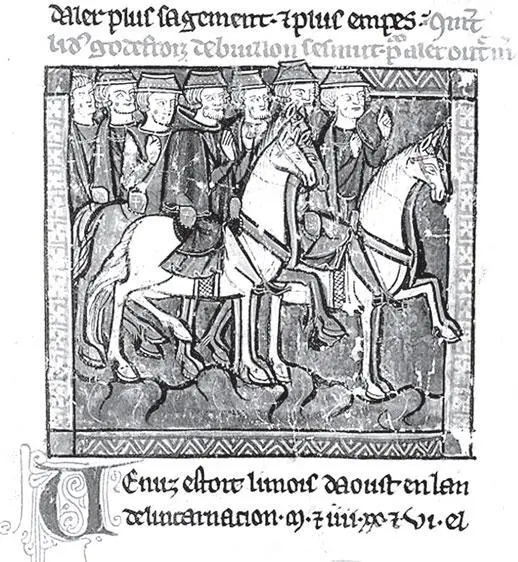 daler plus sagement · ⁊ plus empes · Qu̅t
li dus godefroiz debuillon sesmut · p aler outr m
Uenuz estoit limois daoust en lan
delincarnacion · M · ⁊ iiii · xx · ⁊ vi · el